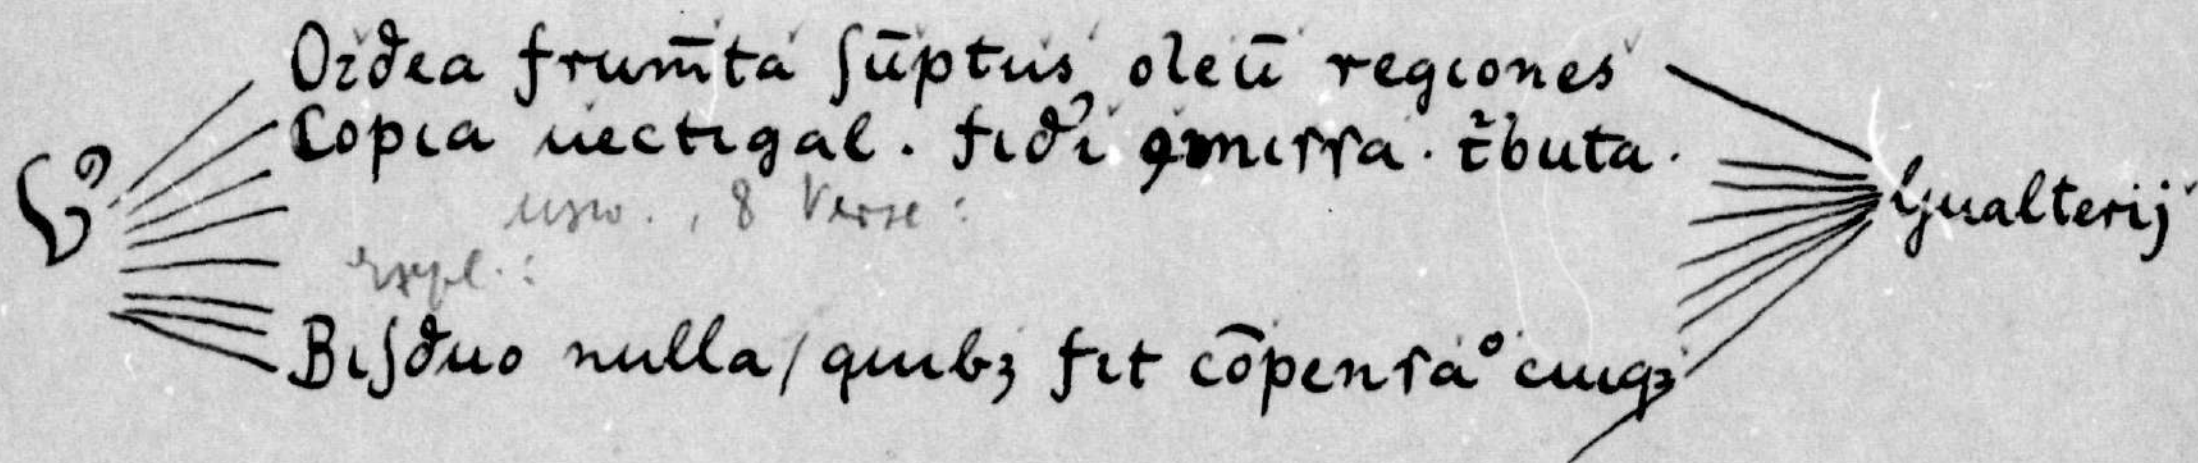 Ordea frum̄ta ſūptus oleū regiones
Copia uectigal . fidʼi ꝯmissa . tͥbuta .
usw. , 8 Verse :
Expl. :
Biſduo nulla / quibꝫ fit cōpensa° cuiqꝫ
Gualterij